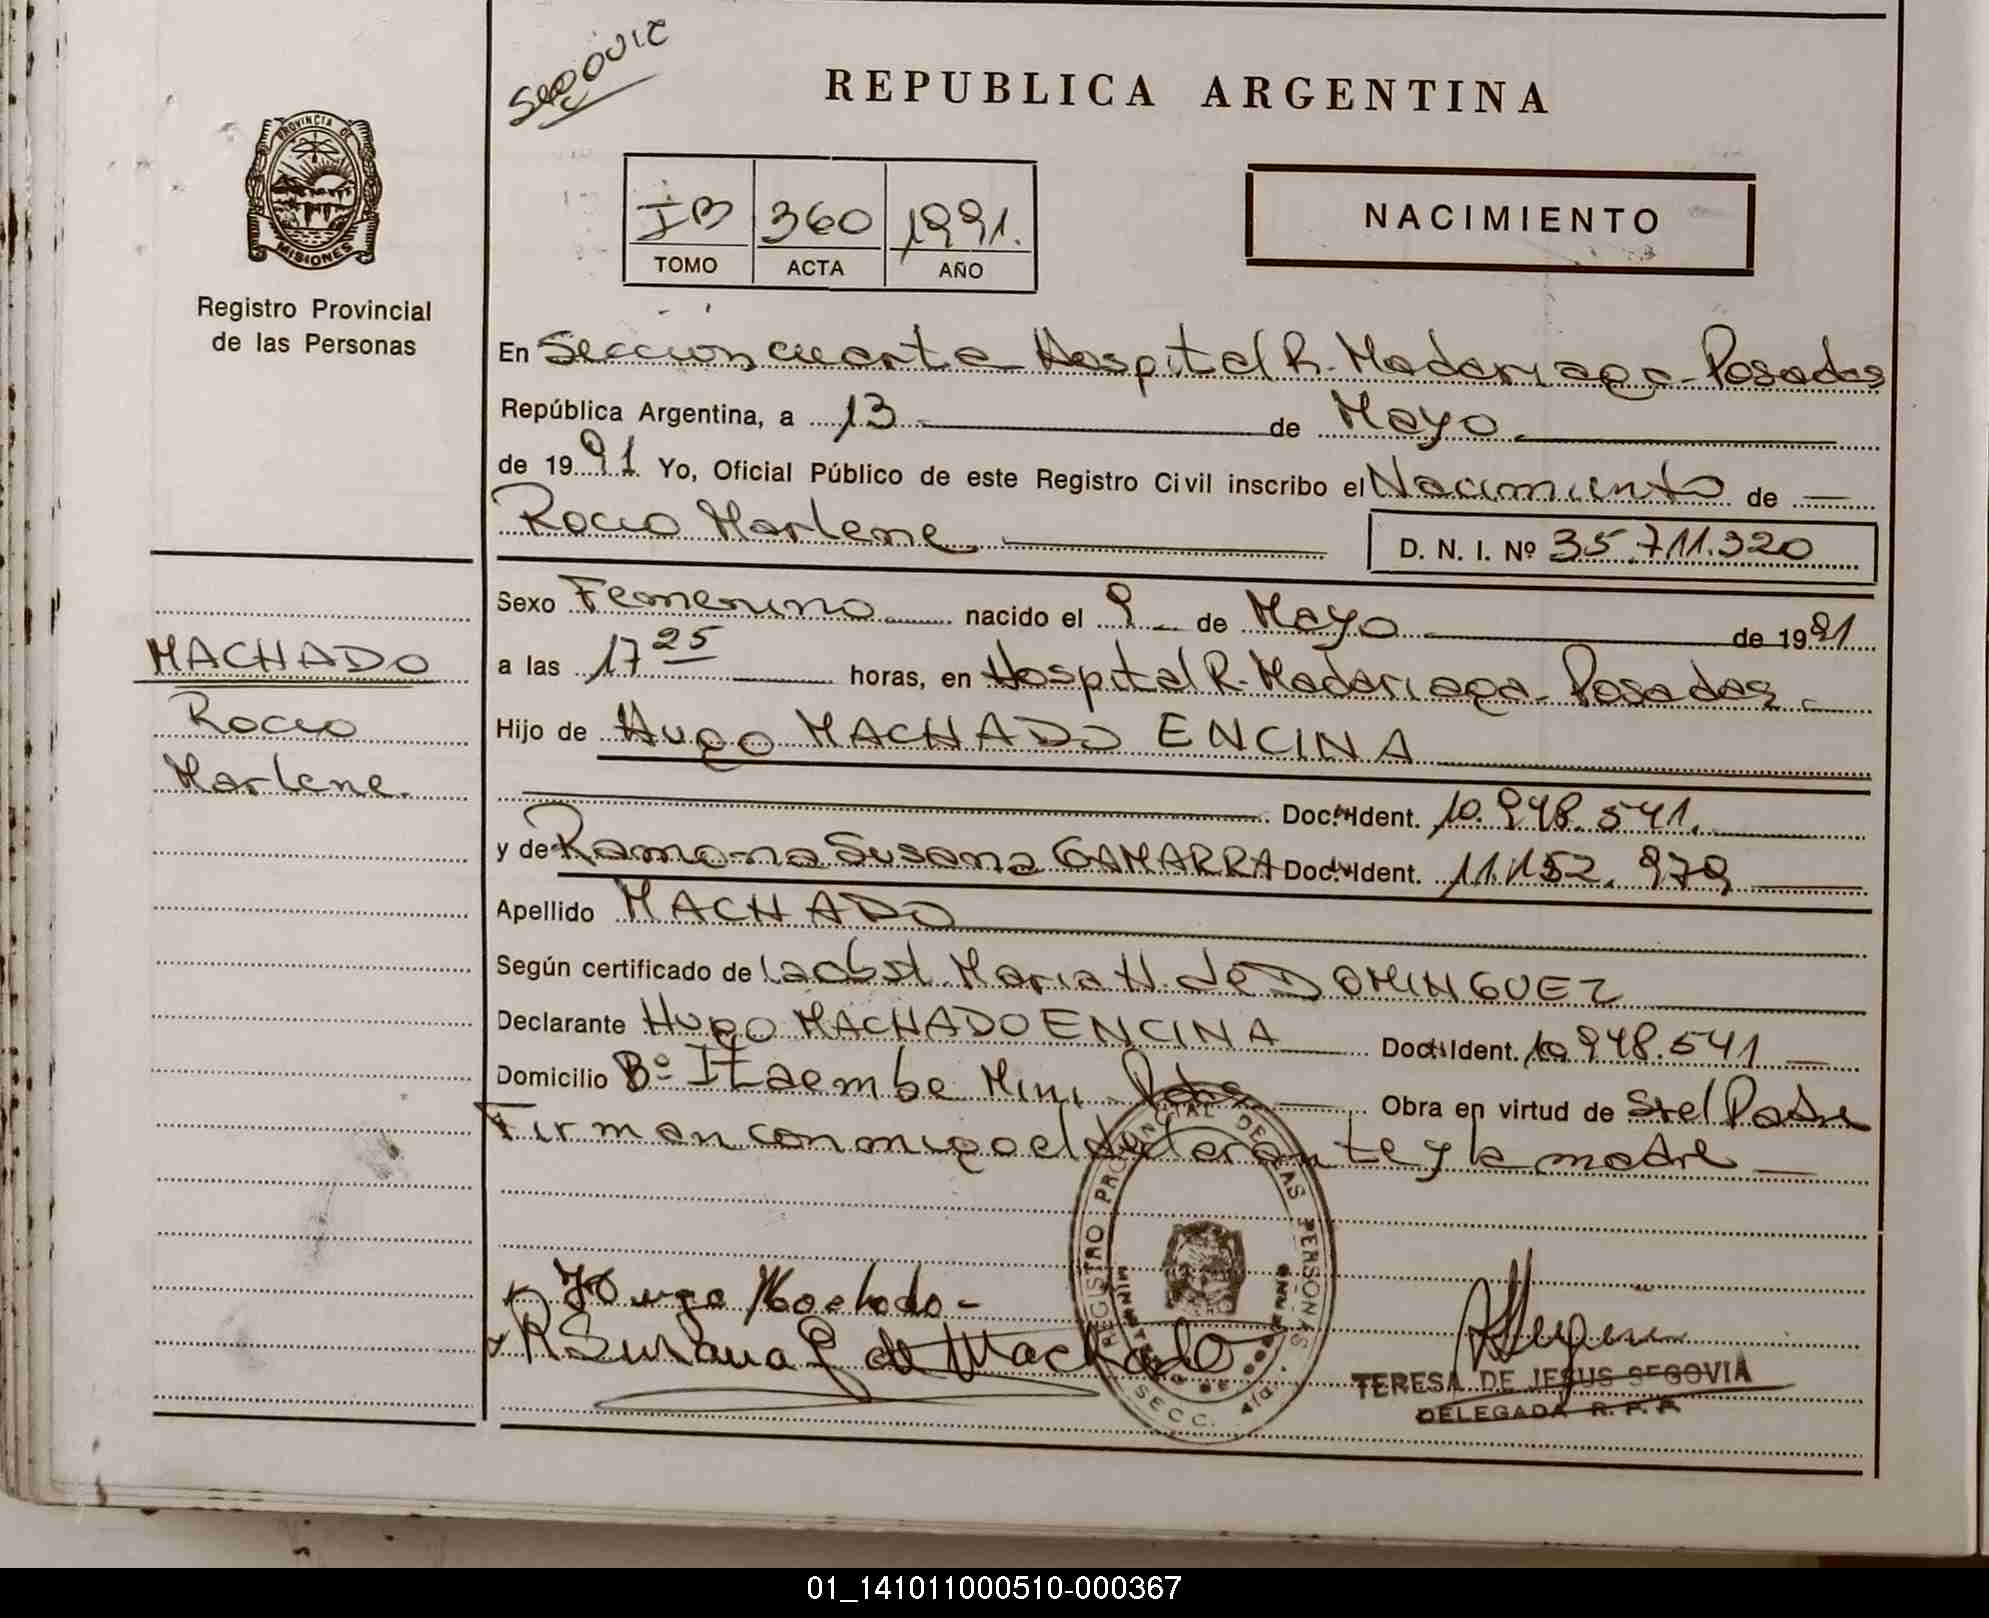 REPUBLICA ARGENTINA
PROVINCIA DE
MISIONES
Registro Provincial
de las Personas
IB 360 1991.
TOMO ACTA AÑO
NACIMIENTO
En Sección cuarta Hospital R. Madariaga - Posadas
República Argentina, a 13 de Mayo
de 1991 Yo, Oficial Público de este Registro Civil inscribo el Nacimiento de
Rocio Marlene D. N. I. Nº 35.711.320
Sexo Femenino nacido el 9 de Mayo de 1991
a las 17 25 horas, en Hospital R. Madariaga - Posadas
MACHADO
Rocio
Marlene.
Hijo de Hugo MACHADO ENCINA
Doc. Ident. 10.948.541.
y de Ramona Susana GAMARRA Doc. Ident. 11.152.979
Apellido MACHADO
Según certificado de la obst. Maria H. de DOMINGUEZ
Declarante Hugo MACHADO ENCINA Doc. Ident. 10.948.541
Domicilio Bº Itaembe Mini Pdas Obra en virtud de Padre
Firman conmigo el declarante y la madre
REGISTRO PROVINCIAL DE LAS PERSONAS
MINISTERIO DE GOBIERNO
SECC. 4ta.
Hugo Machado -
R Susana G de Machado
TERESA DE JESUS SEGOVIA
DELEGADA R. P. P.
01_141011000510-000367